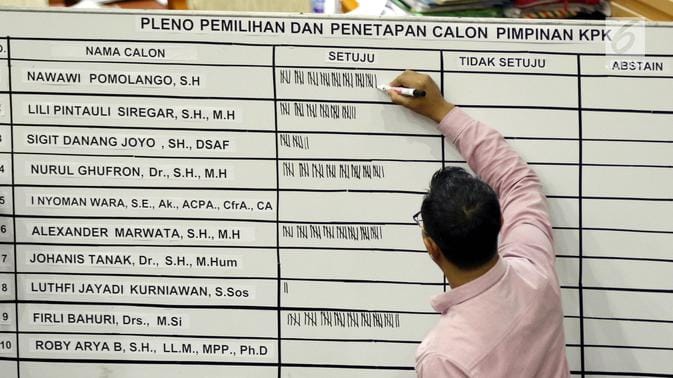 PLENO PEMILIHAN DAN PENETAPAN CALON PIMPINAN KPK
O. NAMA CALON SETUJU TIDAK SETUJU ABSTAIN
NAWAWI POMOLANGO, S.H
LILI PINTAULI SIREGAR, S.H., M.H
SIGIT DANANG JOYO , SH., DSAF
4 NURUL GHUFRON, Dr., S.H., M.H
5 I NYOMAN WARA, S.E., Ak., ACPA., CfrA., CA
6 ALEXANDER MARWATA, S.H., M.H
7 JOHANIS TANAK, Dr., S.H., M.Hum
8 LUTHFI JAYADI KURNIAWAN, S.Sos
9 FIRLI BAHURI, Drs., M.Si
10 ROBY ARYA B, S.H., LL.M., MPP., Ph.D